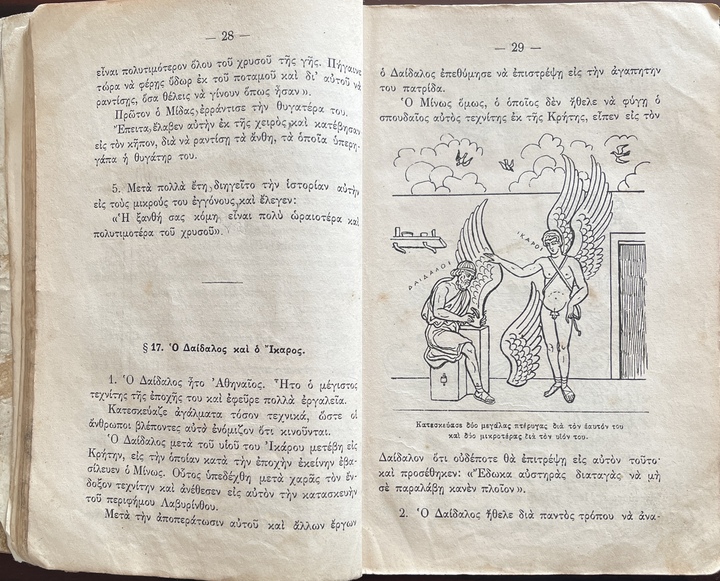 — 28 —
εἶναι πολυτιμότερον ὅλου τοῦ χρυσοῦ τῆς γῆς. Πήγαινε
τώρα νὰ φέρῃς ὕδωρ ἐκ τοῦ ποταμοῦ καὶ δι' αὐτοῦ νὰ
ραντίσῃς, ὅσα θέλεις νὰ γίνουν ὅπως ἦσαν».
Πρῶτον ὁ Μίδας ἐρράντισε τὴν θυγατέρα του.
Ἔπειτα ἔλαβεν αὐτὴν ἐκ τῆς χειρὸς καὶ κατέβησαν
εἰς τὸν κῆπον, διὰ νὰ ραντίσῃ τὰ ἄνθη, τὰ ὁποῖα ὑπερη-
γάπα ἡ θυγάτηρ του.
5. Μετὰ πολλὰ ἔτη διηγεῖτο τὴν ἱστορίαν αὐτὴν
εἰς τοὺς μικρούς του ἐγγόνους καὶ ἔλεγεν:
«Ἡ ξανθή σας κόμη εἶναι πολὺ ὡραιοτέρα καὶ
πολυτιμοτέρα τοῦ χρυσοῦ».
§ 17. Ὁ Δαίδαλος καὶ ὁ Ἴκαρος.
1. Ὁ Δαίδαλος ἦτο Ἀθηναῖος. Ἦτο ὁ μέγιστος
τεχνίτης τῆς ἐποχῆς του καὶ ἐφεῦρε πολλὰ ἐργαλεῖα.
Κατεσκεύαζε ἀγάλματα τόσον τεχνικά, ὥστε οἱ
ἄνθρωποι βλέποντες αὐτὰ ἐνόμιζον ὅτι κινοῦνται.
Ὁ Δαίδαλος μετὰ τοῦ υἱοῦ του Ἰκάρου μετέβη εἰς
Κρήτην, εἰς τὴν ὁποίαν κατὰ τὴν ἐποχὴν ἐκείνην ἐβα-
σίλευεν ὁ Μίνως. Οὗτος ὑπεδέχθη μετὰ χαρᾶς τὸν ἔν-
δοξον τεχνίτην καὶ ἀνέθεσεν εἰς αὐτὸν τὴν κατασκευὴν
τοῦ περιφήμου Λαβυρίνθου.
Μετὰ τὴν ἀποπεράτωσιν αὐτοῦ καὶ ἄλλων ἔργων
— 29 —
ὁ Δαίδαλος ἐπεθύμησε νὰ ἐπιστρέψῃ εἰς τὴν ἀγαπητήν
του πατρίδα.
Ὁ Μίνως ὅμως, ὁ ὁποῖος δὲν ἤθελε νὰ φύγῃ ὁ
σπουδαῖος αὐτὸς τεχνίτης ἐκ τῆς Κρήτης, εἶπεν εἰς τὸν
ΙΚΑΡΟΣ
ΔΑΙΔΑΛΟΣ
Κατεσκεύασε δύο μεγάλας πτέρυγας διὰ τὸν ἑαυτόν του
καὶ δύο μικροτέρας διὰ τὸν υἱόν του.
Δαίδαλον ὅτι οὐδέποτε θὰ ἐπιτρέψῃ εἰς αὐτὸν τοῦτο·
καὶ προσέθηκεν: «Ἔδωκα αὐστηρὰς διαταγὰς νὰ μὴ
σὲ παραλάβῃ κανὲν πλοῖον».
2. Ὁ Δαίδαλος ἤθελε διὰ παντὸς τρόπου νὰ ἀνα-